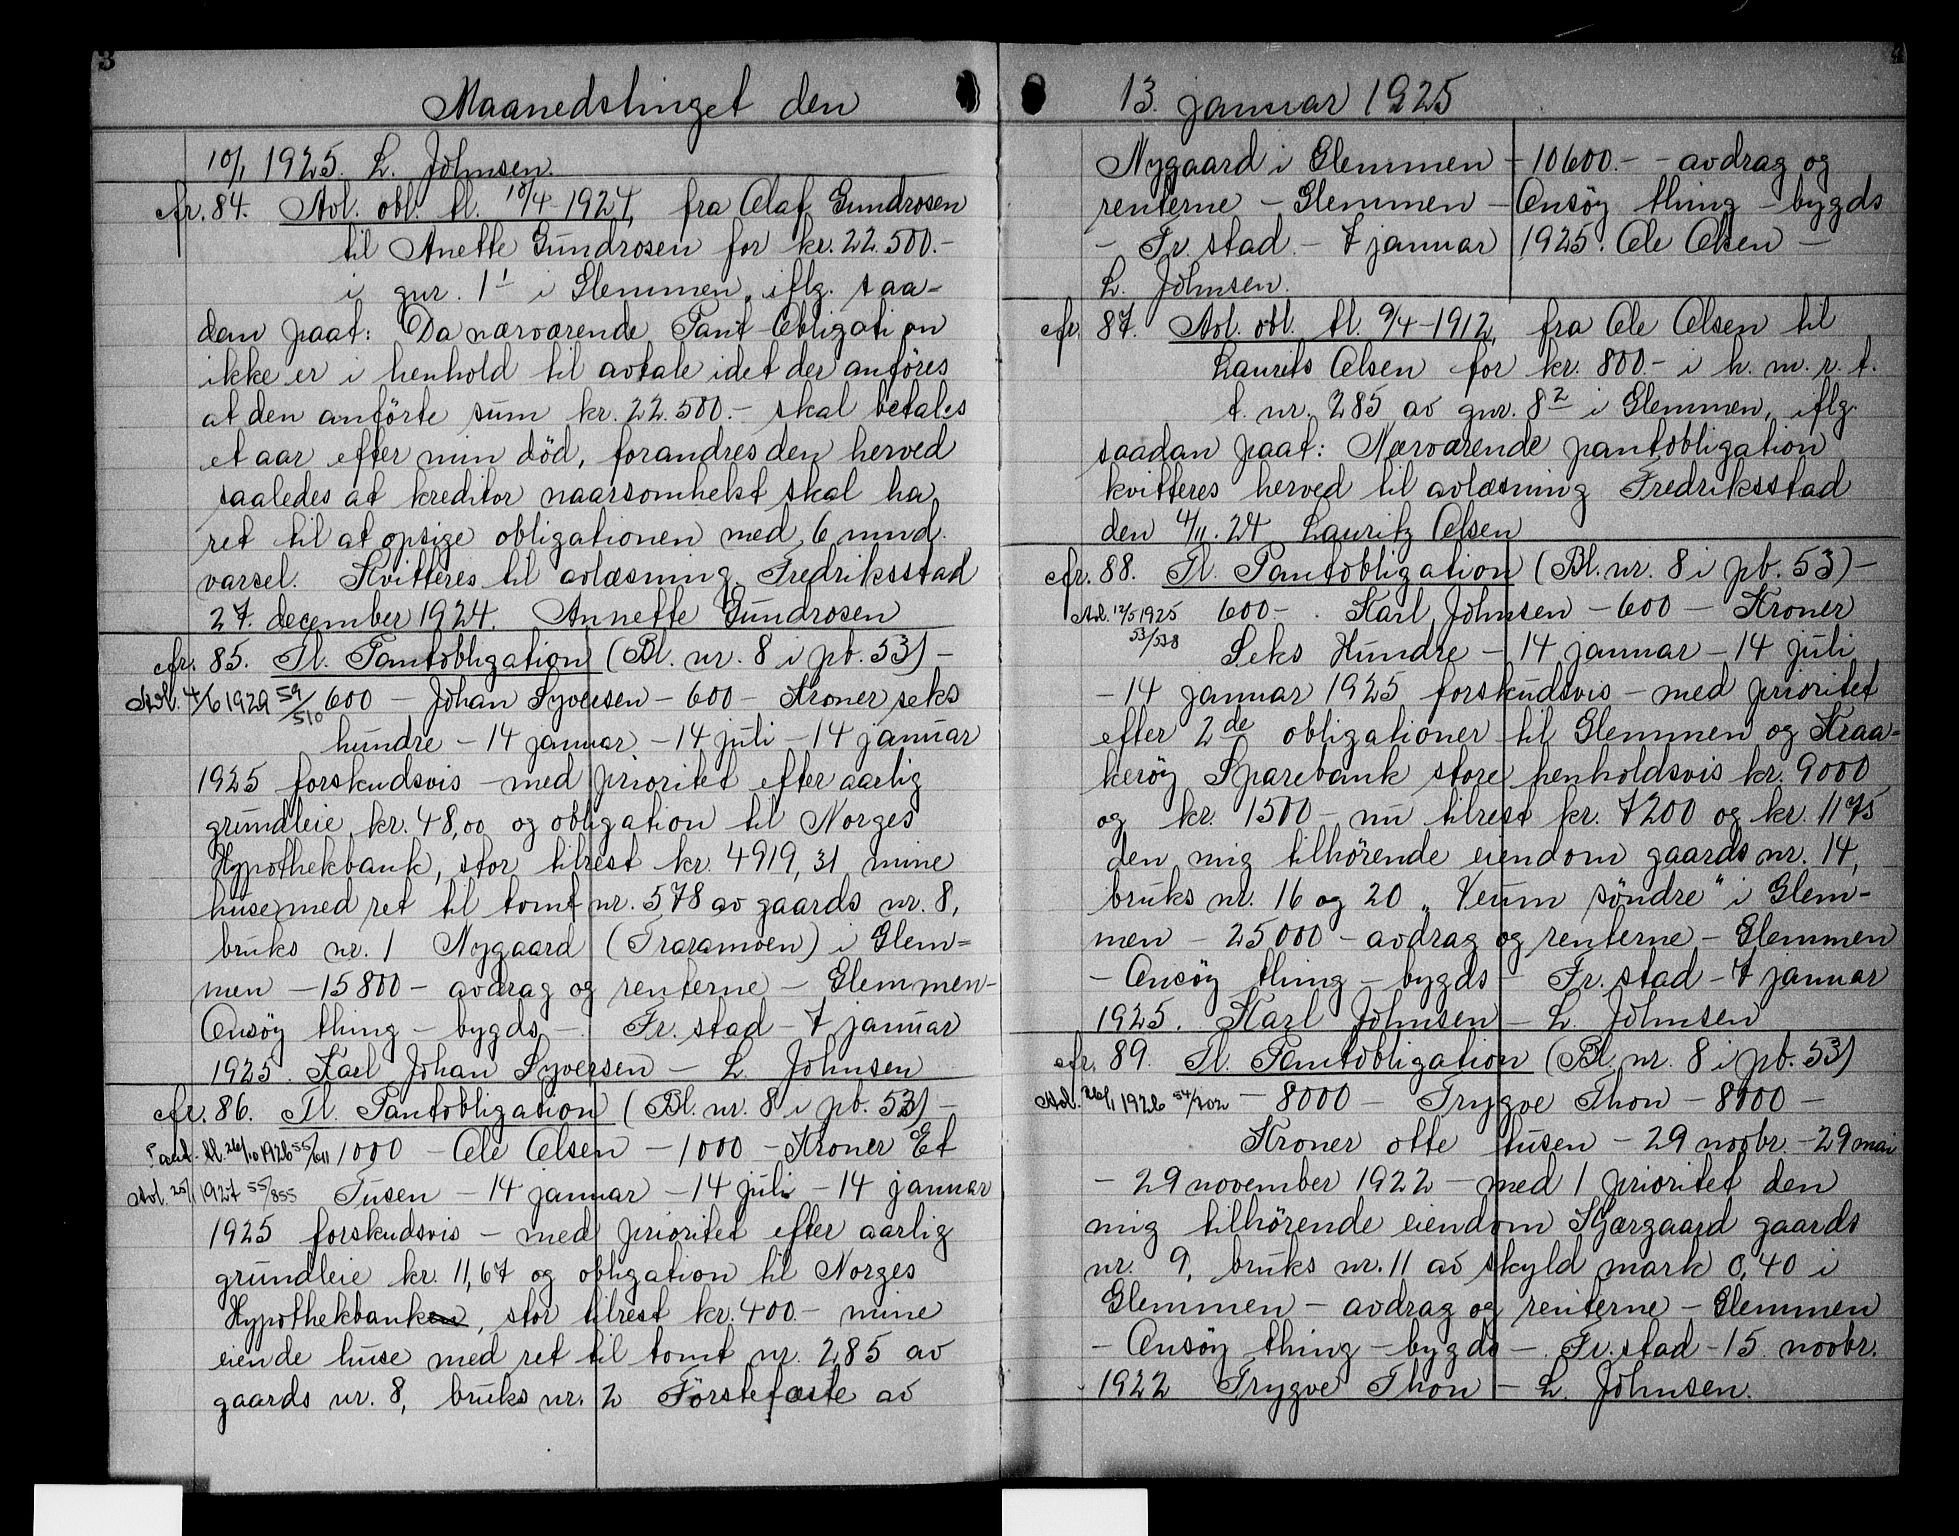 3
Maanedstinget den
10/1 1925. L. Johnsen.
cfr. 84. Avl. obl. tl. 18/4-1924, fra Olaf Gundrosen
til Anette Gundrosen for kr. 22.500.-
i gnr. 1¹ i Glemmen, iflg. saa-
dan paat: Da nærværende Pant-Obligation
ikke er i henhold til avtale idet der anföres
at den anförte sum kr. 22.500.- skal betales
et aar efter min död, forandres den herved
saaledes at kreditor naarsomhelst skal ha
ret til at opsige obligationen med 6 mnd.
varsel. Kvitteres til avlæsning. Fredriksstad
27. december 1924. Annette Gundrosen
cfr. 85. Tl. Pantobligation (Bl. nr. 8 i pb. 53) -
Avl. 4/6 1929 59/510 600 - Johan Syversen - 600 - Kroner seks
hundre - 14 januar - 14 juli - 14 januar
1925 forskudsvis - med prioritet efter aarlig
grundleie kr. 48,00 og obligation til Norges
Hypothekbank, stor tilrest kr. 4919,31 mine
huse med ret til tomt nr. 578 av gaards nr. 8,
bruks nr. 1 Nygaard (Traramoen) i Glem-
men - 15800 - avdrag og renterne - Glemmen-
Onsöy thing - bygds - Fr. stad - 7 januar
1925. Karl Johan Syversen - L. Johnsen
cfr. 86. Tl. Pantobligation (Bl. nr. 8 i pb. 53) -
Pant. tl. 26/10 1926 55/611 1000 - Ole Olsen - 1000 - Kroner Et
Avl. 25/1 1927 55/855 Tusen - 14 januar - 14 juli - 14 januar
1925 forskudsvis - med prioritet efter aarlig
grundleie kr. 11,67 og obligation til Norges
Hypothekbanken, stor tilrest kr. 400.- mine
eiende huse med ret til tomt nr. 285 av
gaards nr. 8, bruks nr. 2 Förstefæste av
4
13. januar 1925
Nygaard i Glemmen - 10600.- - avdrag og
renterne - Glemmen - Onsöy thing - bygds
- Fr. stad. - 7 januar 1925. Ole Olsen -
L. Johnsen.
cfr. 87. Avl. obl. tl. 9/4-1912, fra Ole Olsen til
Laurits Olsen for kr. 800.- i h. m. r. t.
t. nr. 285 av gnr. 8² i Glemmen, iflg.
saadan paat: Nærværende pantobligation
kvitteres herved til avlæsning Fredriksstad
den 4/11. 24 Lauritz Olsen
cfr. 88. Tl. Pantobligation (Bl. nr. 8 i pb. 53) -
Avl. 12/5 1925 600 - . Karl Johnsen - 600 - Kroner
53/538 Seks Hundre - 14 januar - 14 juli
- 14 januar 1925 forskudsvis - med prioritet
efter 2de obligationer til Glemmen og Kraa-
keröy Sparebank store henholdsvis kr. 9000
og kr. 1500 - nu tilrest kr. 7200 og kr. 1175
den mig tilhörende eiendom gaards nr. 14,
bruks nr. 16 og 20 „Veum söndre" i Glem-
men - 25000 - avdrag og renterne - Glemmen
- Onsöy thing - bygds - Fr. stad - 7 januar
1925. Karl Johnsen - L. Johnsen
cfr. 89. Tl. Pantobligation (Bl. nr. 8 i pb. 53)
Avl. 26/1 1926 54/202 - 8000 - Trygve Thon - 8000 -
Kroner otte tusen - 29 novbr. - 29 mai
- 29 november 1922 - med 1 prioritet den
mig tilhörende eiendom Kjærgaard gaards
nr. 9, bruks nr. 11 av skyld mark 0,40 i
Glemmen - avdrag og renterne - Glemmen
- Onsöy thing - bygds - . Fr. stad - 15 novbr.
1922 Trygve Thon - L. Johnsen.